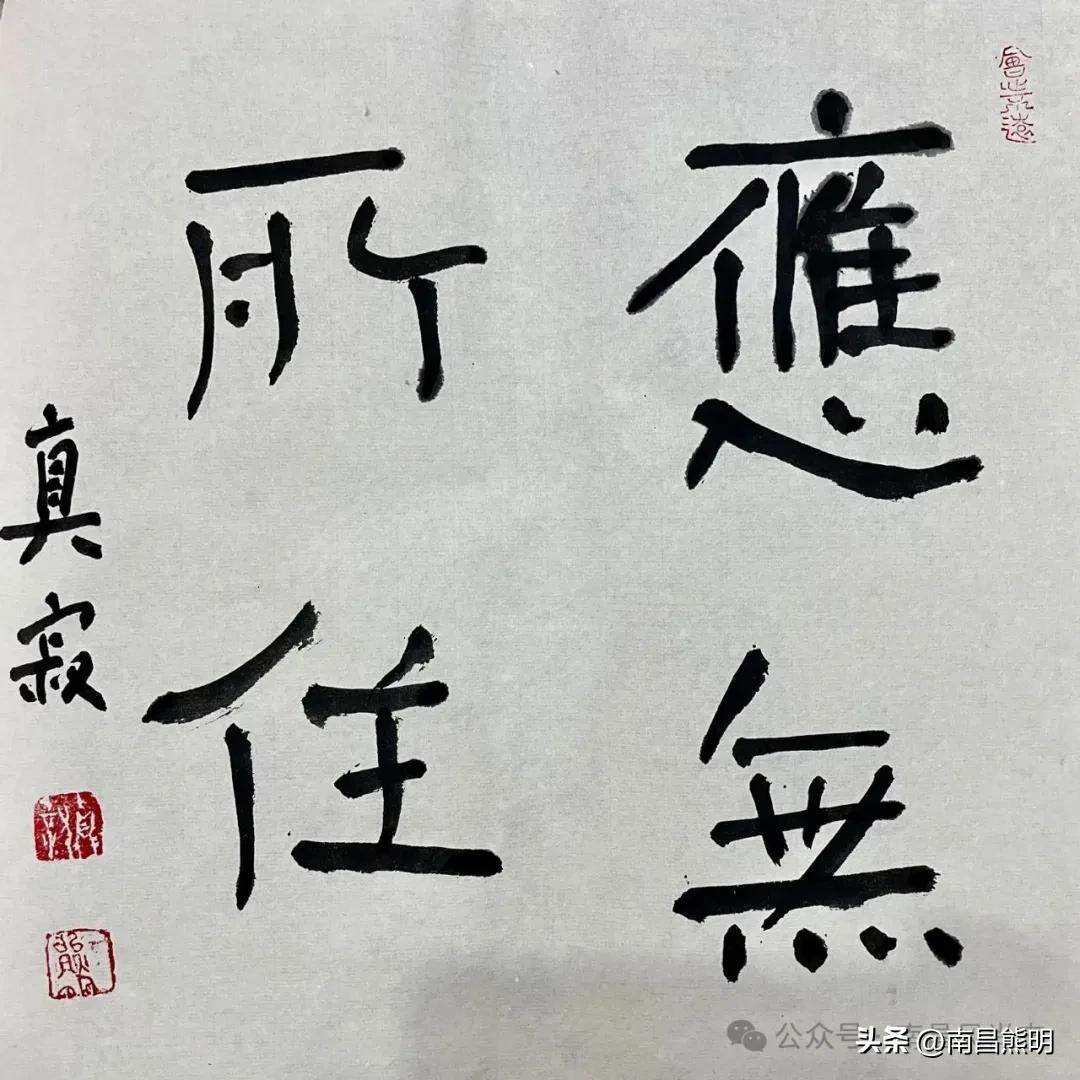 應無
所住
真寂
公众号
头条 @南昌熊明